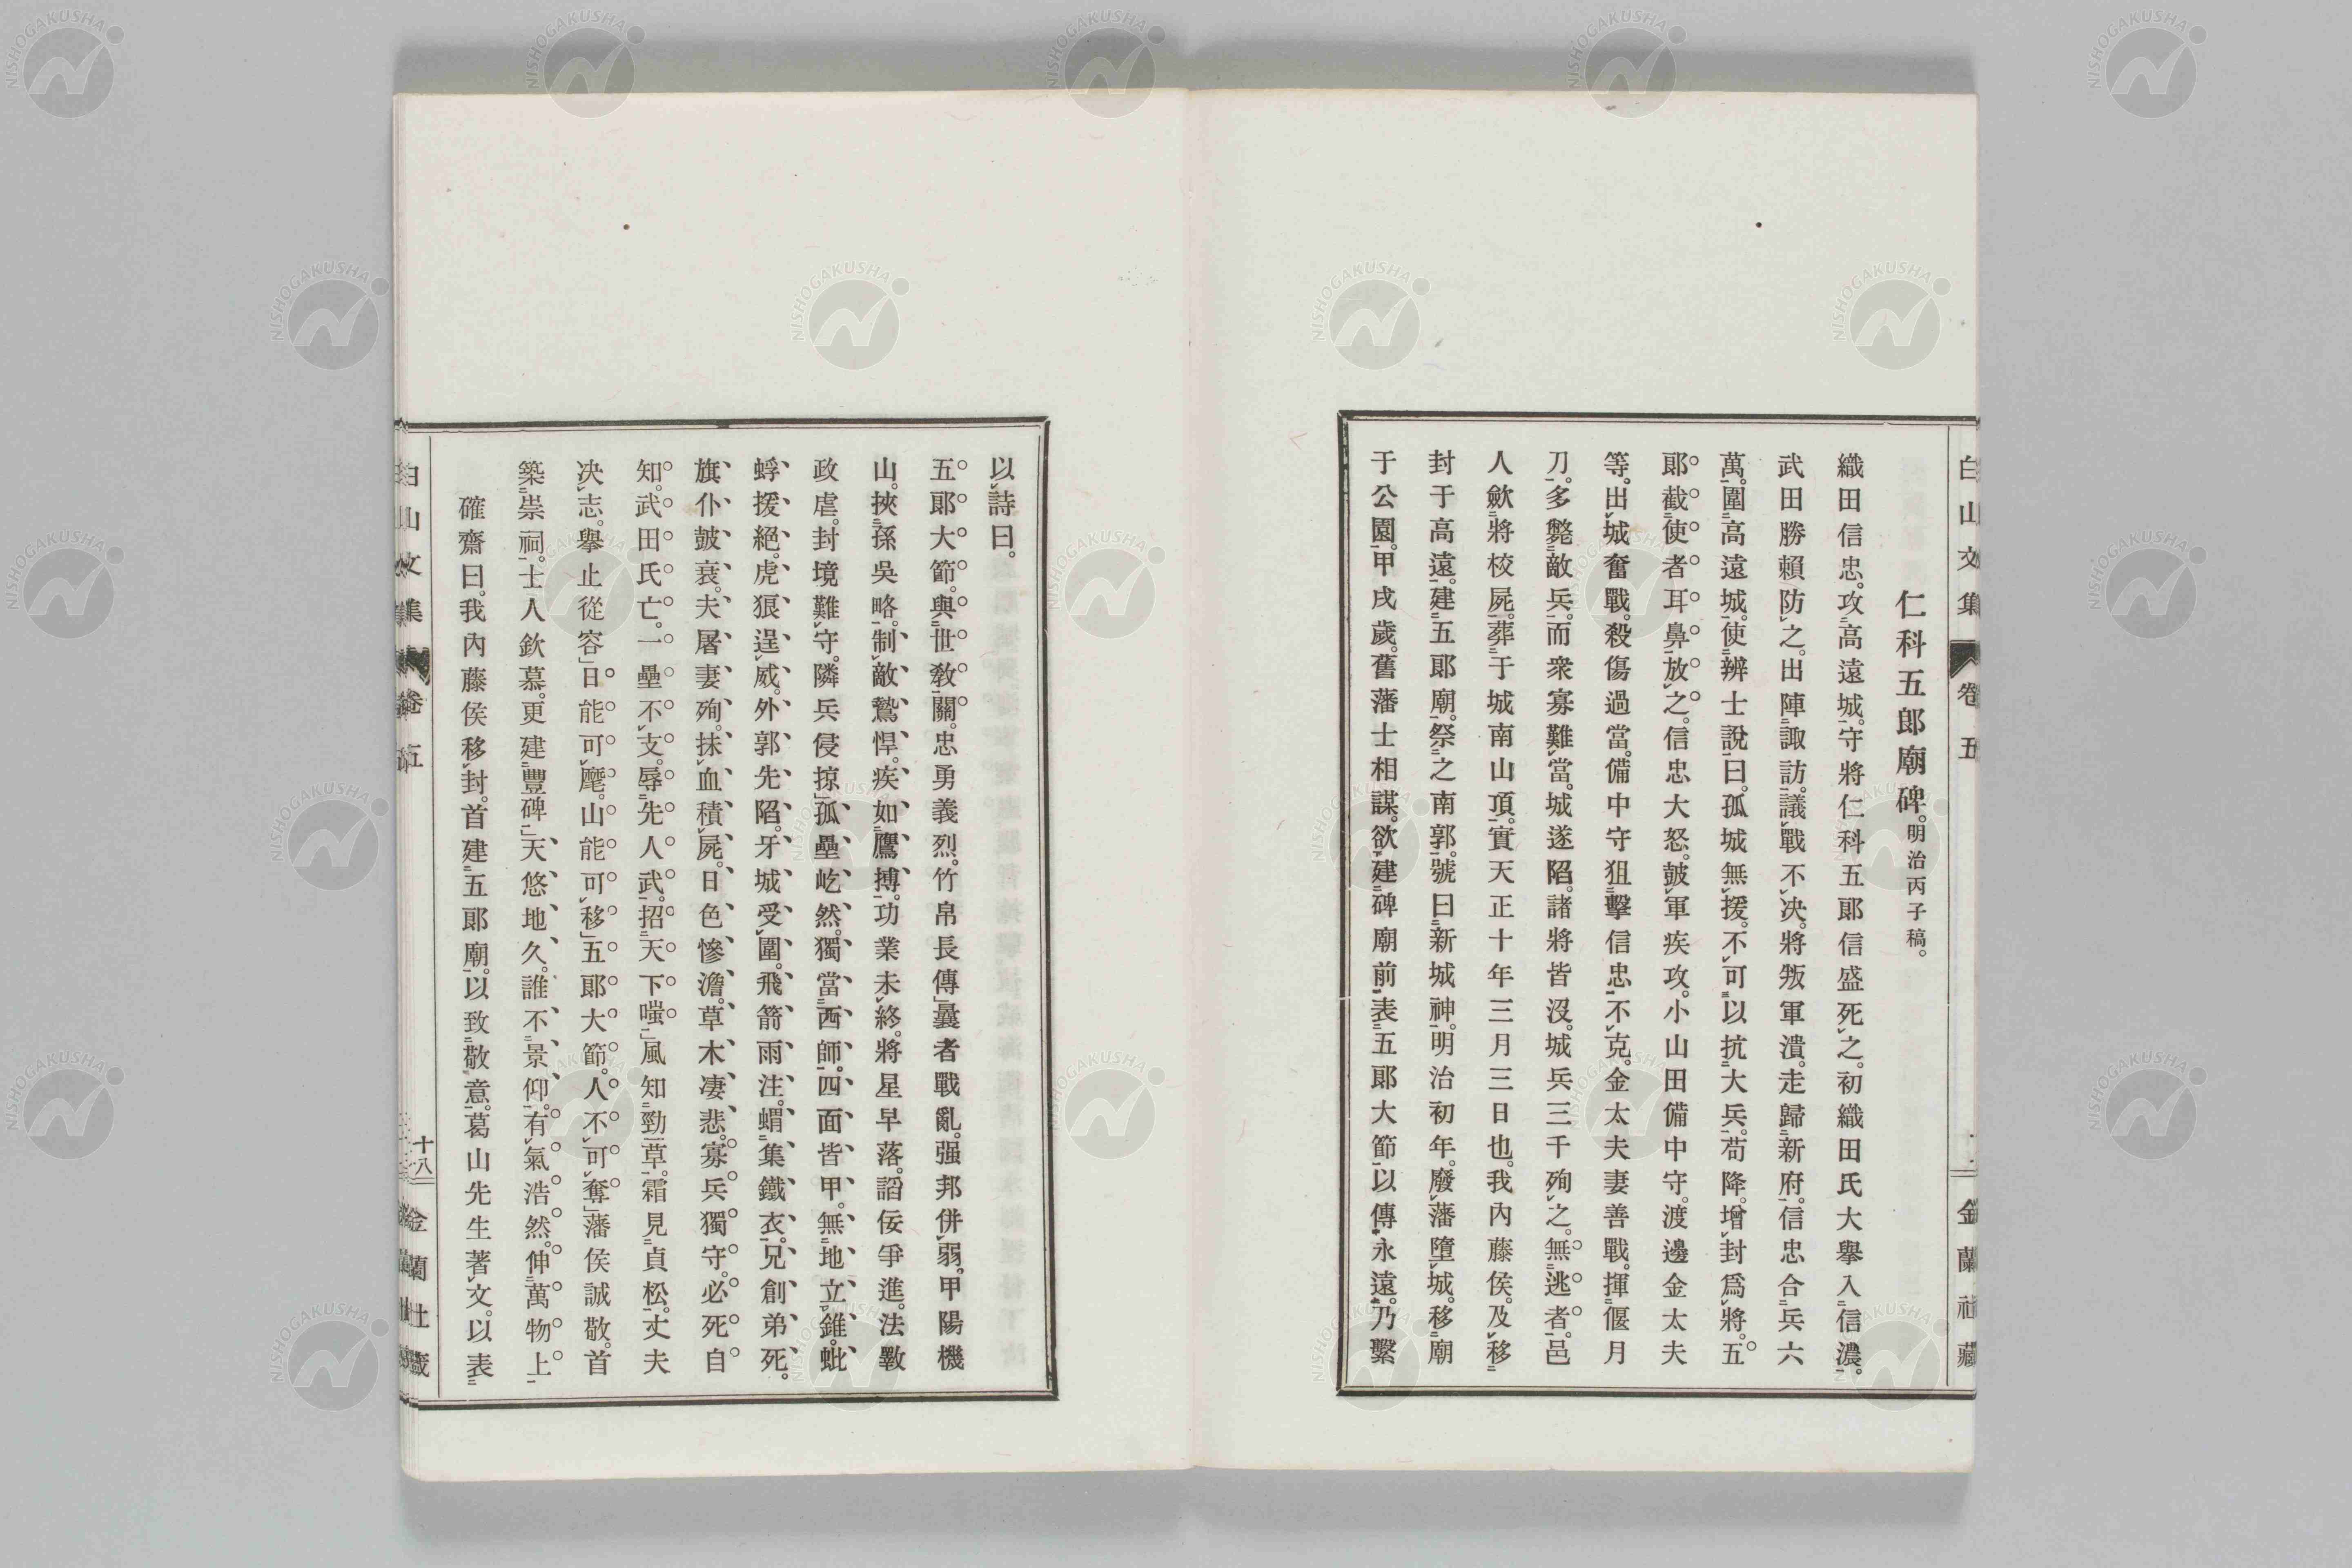 白山文集 卷五 金蘭社藏
仁科五郎廟碑。明治丙子稿。
織田信忠。攻高遠城。守將仁科五郞信盛死之。初織田氏大擧入信濃。
武田勝賴防之。出陣諏訪。議戰不決。將叛軍潰。走歸新府。信忠合兵六
萬。圍高遠城。使辨士說曰。孤城無援。不可以抗大兵。苟降。增封爲將。五
郞截使者耳鼻。放之。信忠大怒。皷軍疾攻。小山田備中守。渡邊金太夫
等。出城奮戰。殺傷過當。備中守狙擊信忠。不克。金太夫妻善戰。揮偃月
刀。多斃敵兵。而衆寡難當。城遂陷。諸將皆沒。城兵三千殉之。無逃者。邑
人歛將校屍。葬于城南山頂。實天正十年三月三日也。我內藤侯。及移
封于高遠。建五郞廟。祭之南郭。號曰新城神。明治初年。廢藩墮城。移廟
于公園。甲戌歲。舊藩士相謀。欲建碑廟前。表五郞大節。以傳永遠。乃繫
以詩曰。
五郞大節。與世敎關。忠勇義烈。竹帛長傳」曩者戰亂。强邦併弱。甲陽機
山。挾孫吳略。制敵鷙悍。疾如鷹搏。功業未終。將星早落。謟佞爭進。法斁
政虐。封境難守。隣兵侵掠」孤壘屹然。獨當西師。四面皆甲。無地立錐。蚍
蜉援絕。虎狼逞威。外郭先陷。牙城受圍。飛箭雨注。蝟集鐵衣。兄創弟死。
旗仆皷衰。夫屠妻殉。抹血積屍。日色慘澹。草木凄悲。寡兵獨守。必死自
知。武田氏亡。一壘不支。辱先人武。招天下嗤」風知勁草。霜見貞松。丈夫
決志。擧止從容」日能可麾。山能可移」五郞大節。人不可奪」藩侯誠敬。首
築崇祠。士人欽慕。更建豐碑」天悠地久。誰不景仰。有氣浩然。伸萬物上。
確齋曰。我內藤侯移封。首建五郞廟。以致敬意。葛山先生著文。以表
白山文集 卷五 十八 金蘭社藏